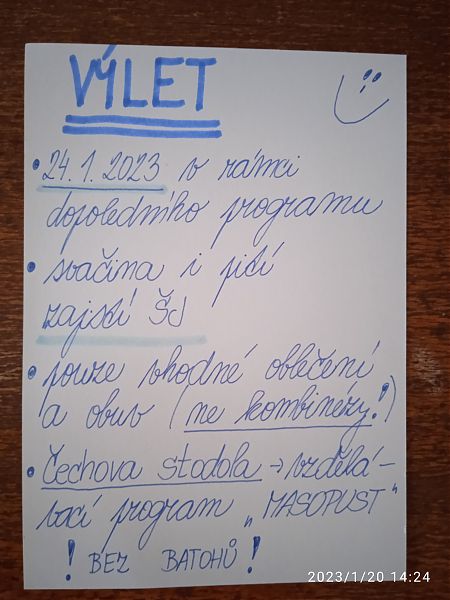 VÝLET
• 24.1.2023 v rámci
dopoledního programu
• svačina i pití
zajistí ŠJ
• pouze vhodné oblečení
a obuv (ne kombinézy!)
• Čechova stodola → vzdělá-
vací program „MASOPUST"
! BEZ BATOHŮ!
2023/1/20 14:24